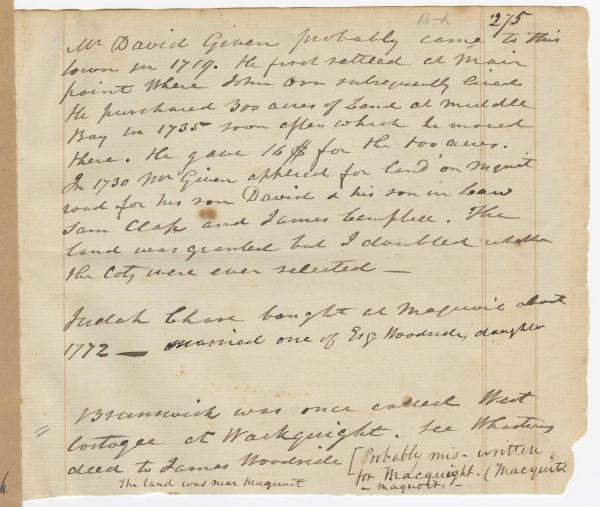 B-k 275
Mr David Given probably came to this
town in 1719. He first settled at Mair
point where John Orr subsequently lived
He purchased 300 acres of Land at Middle
Bay in 1735 soon after which he moved
there. He gave 16 $ for the 100 acres.
In 1730 Mr Given applied for land on Mquit
road for his son David & his son in Law
Sam Clap and James Campbell. The
land was granted but I doubted whether
the Lots were ever selected —
Judah Chase bought at Maquoit about
1772 — married one of Esq Woodsides daughter
Brunswick was once called West
" at Wackquight. See Whartons
deed to James Woodside [Probably mis-written
for Macquight. (Macquite
The land was near Maquoit
– maquoit. –